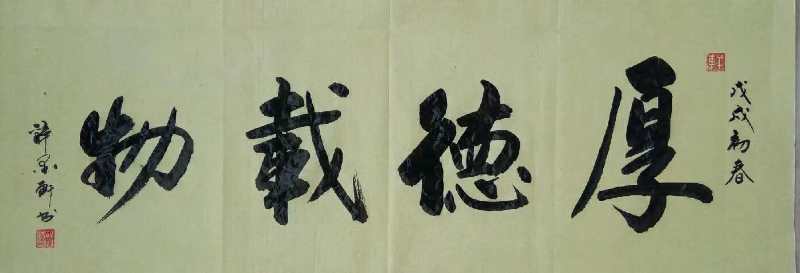 戊戌初春
厚德載物
許墨軒书